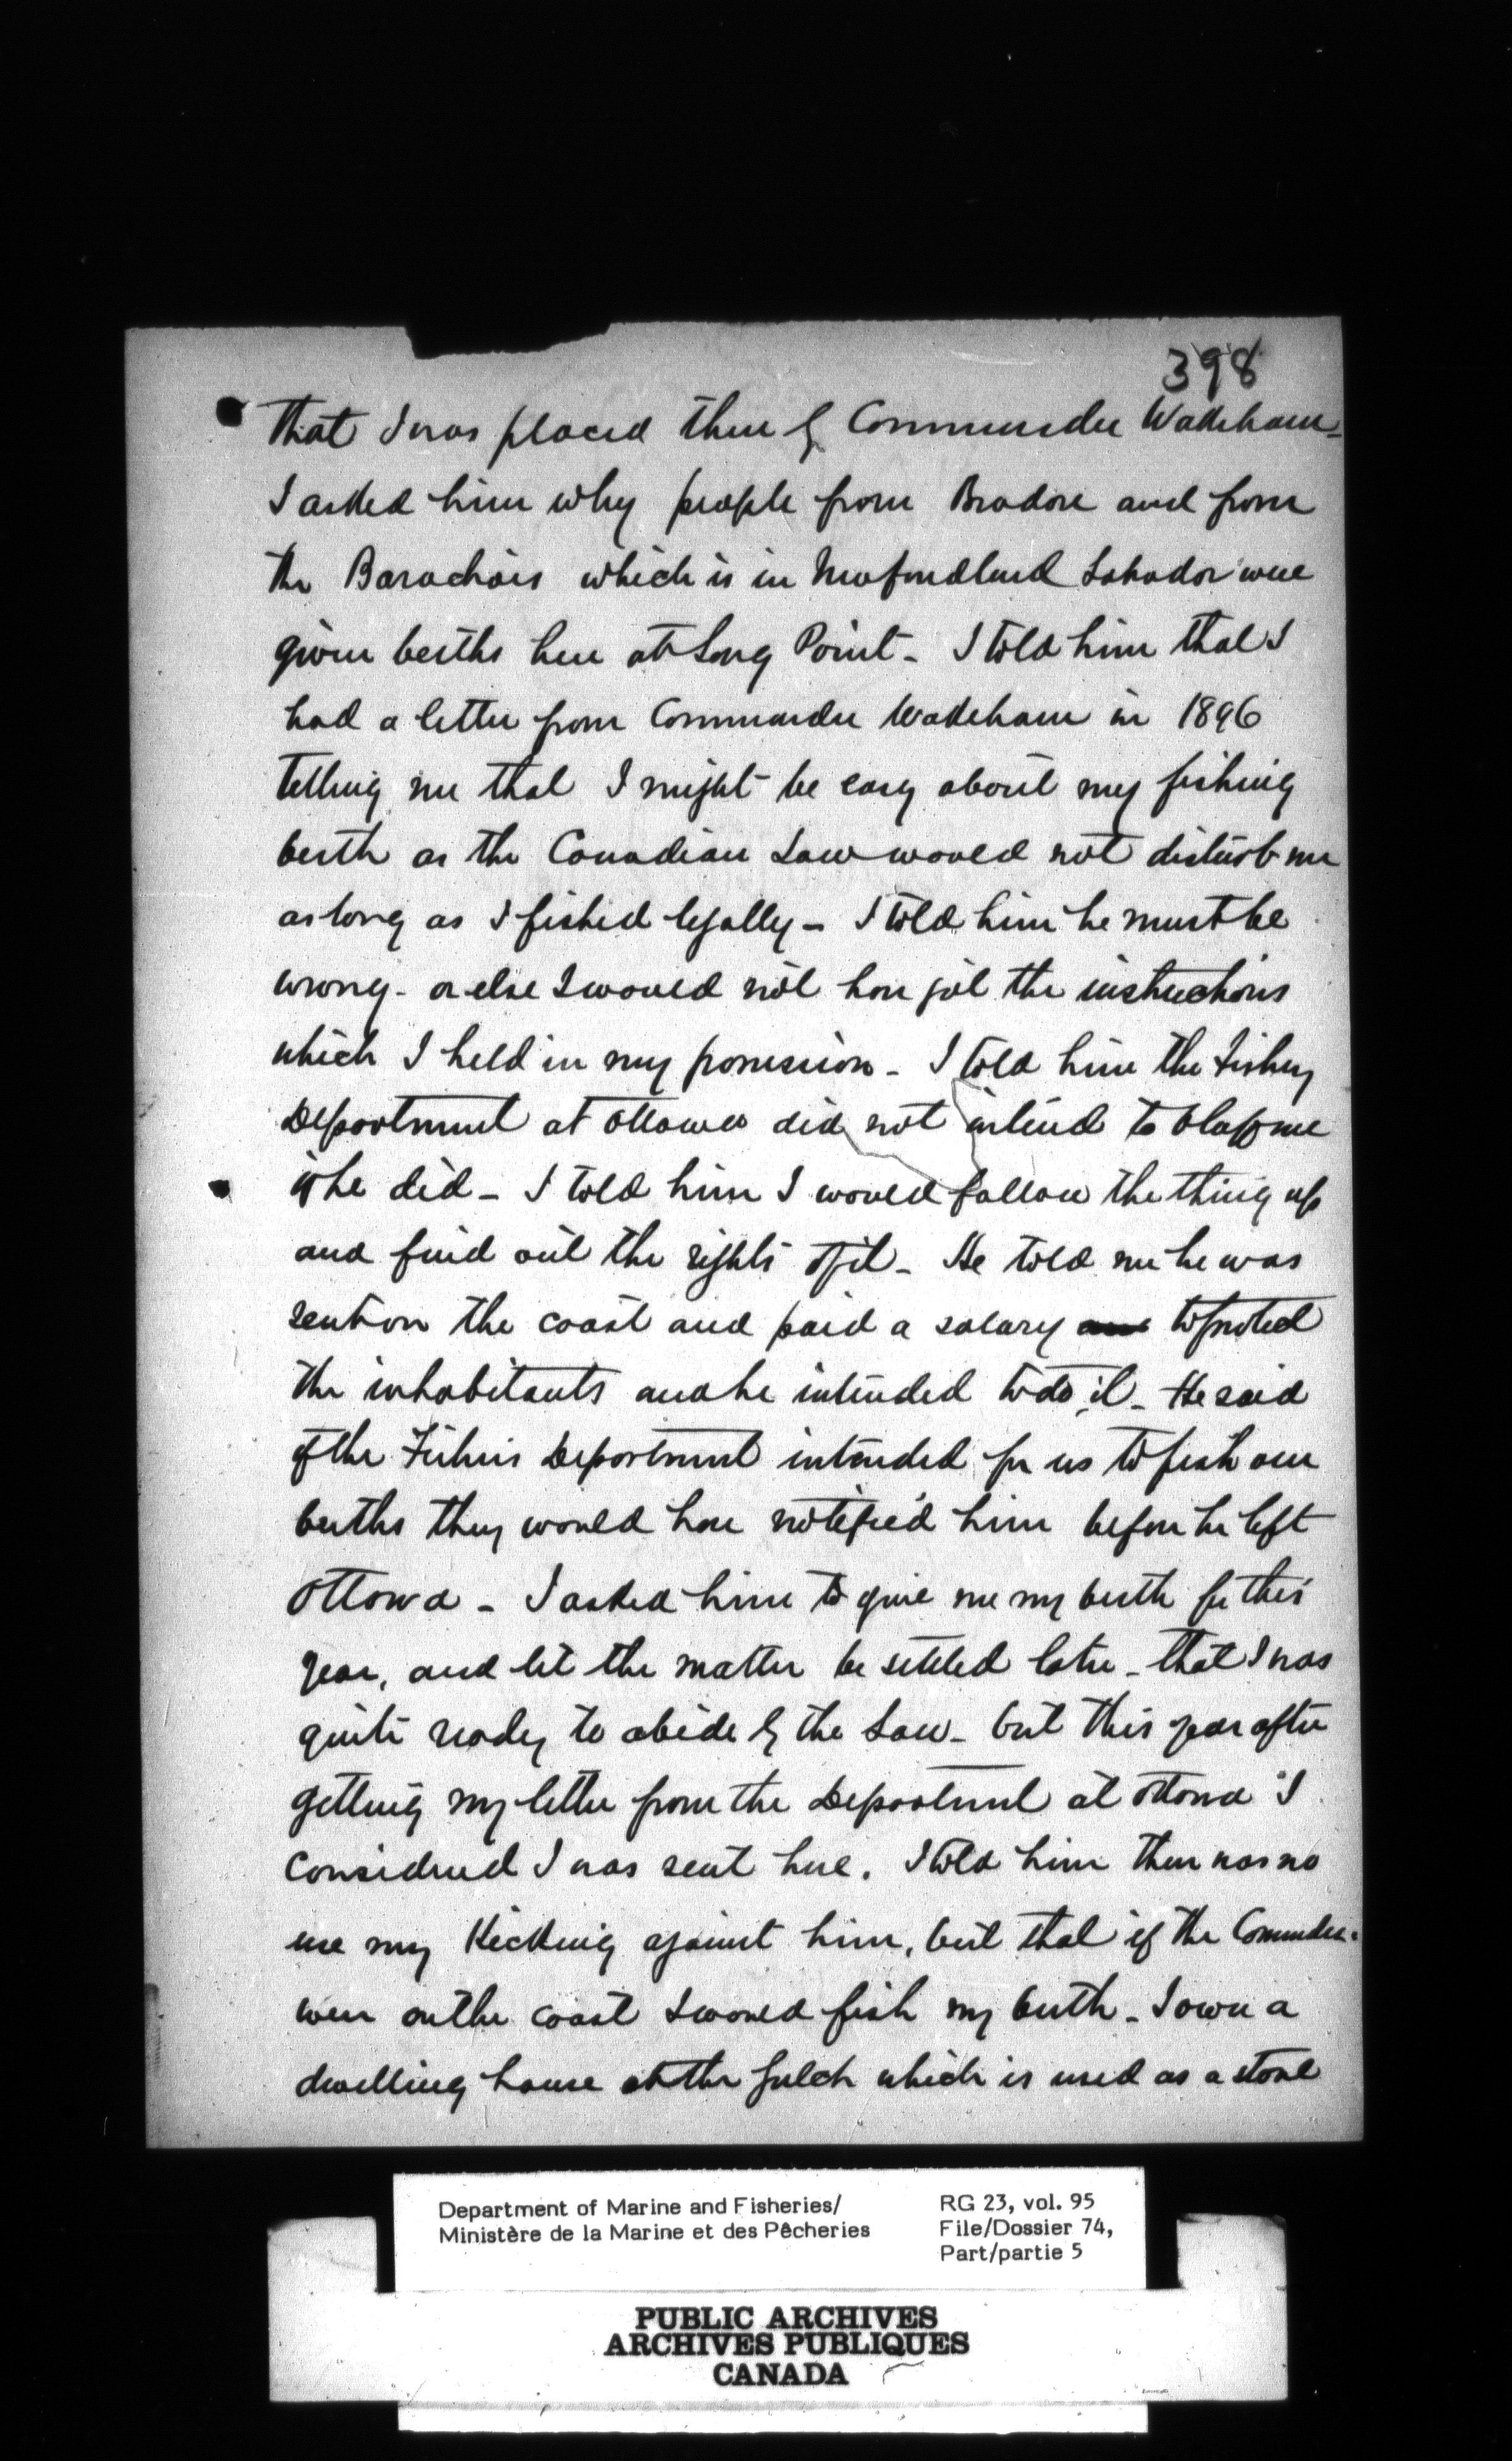 398
that I was placed there by Commander Wakeham -
I asked him why people from Bradore and from
the Barachois which is in Newfoundland Labrador were
given berths here at Long Point - I told him that I
had a letter from Commander Wakeham in 1896
telling me that I might be easy about my fishing
berth as the Canadian Law would not disturb me
as long as I fished legally - I told him he must be
wrong - or else I would not have got the instructions
which I held in my possession - I told him the Fishery
Department at Ottawa did not intend to stop me
if he did - I told him I would follow the thing up
and find out the rights of it - He told me he was
sent on the coast and paid a salary to protect
the inhabitants and he intended to do it - He said
if the Fisheries Department intended for us to fish our
berths they would have notified him before he left
Ottawa - I asked him to give me my berth for this
year, and let the matter be settled later - that I was
quite ready to abide by the Law - but this year after
getting my letter from the Department at Ottawa I
considered I was sent here. I told him there was no
use my kicking against him, but that if the Commander
were on the coast I would fish my berth - I own a
dwelling house at the gulch which is used as a store
Department of Marine and Fisheries/
Ministère de la Marine et des Pêcheries
RG 23, vol. 95
File/Dossier 74,
Part/partie 5
PUBLIC ARCHIVES
ARCHIVES PUBLIQUES
CANADA